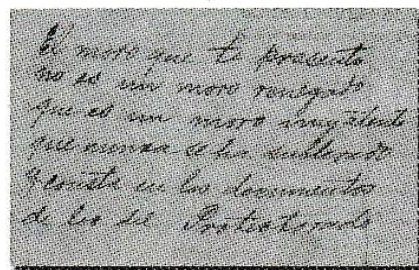 El moro que te presento
no es un moro renegado
que es un moro muy
que nunca se ha sublevado
y consta en los documentos
de los del